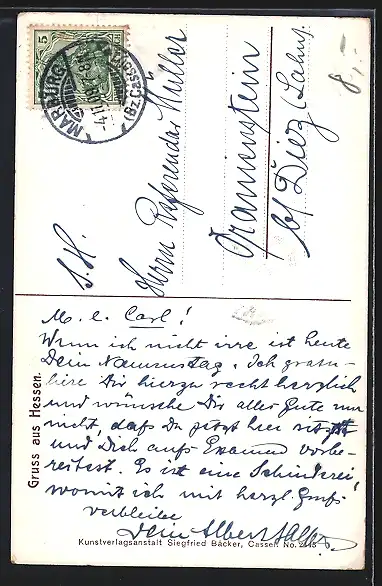 8,-
5
MARBURG
(Bz. Cassel)
S. H.
Herrn Referendar Müller
Oranienstein
b/ Diez (Lahn).
Gruss aus Hessen.
M. l. Carl!
Wenn ich nicht irre ist heute
Dein Namenstag. Ich gratu-
liere Dir hierzu recht herzlich
und wünsche Dir alles Gute nur
nicht, daß Du jetzt hier sitzst
und Dich aufs Examen vorbe-
reitest. Es ist eine Schinderei,
womit ich mit herzl. Gruß
verbleibe
Dein Albert
Kunstverlagsanstalt Siegfried Bäcker, Cassel. No.